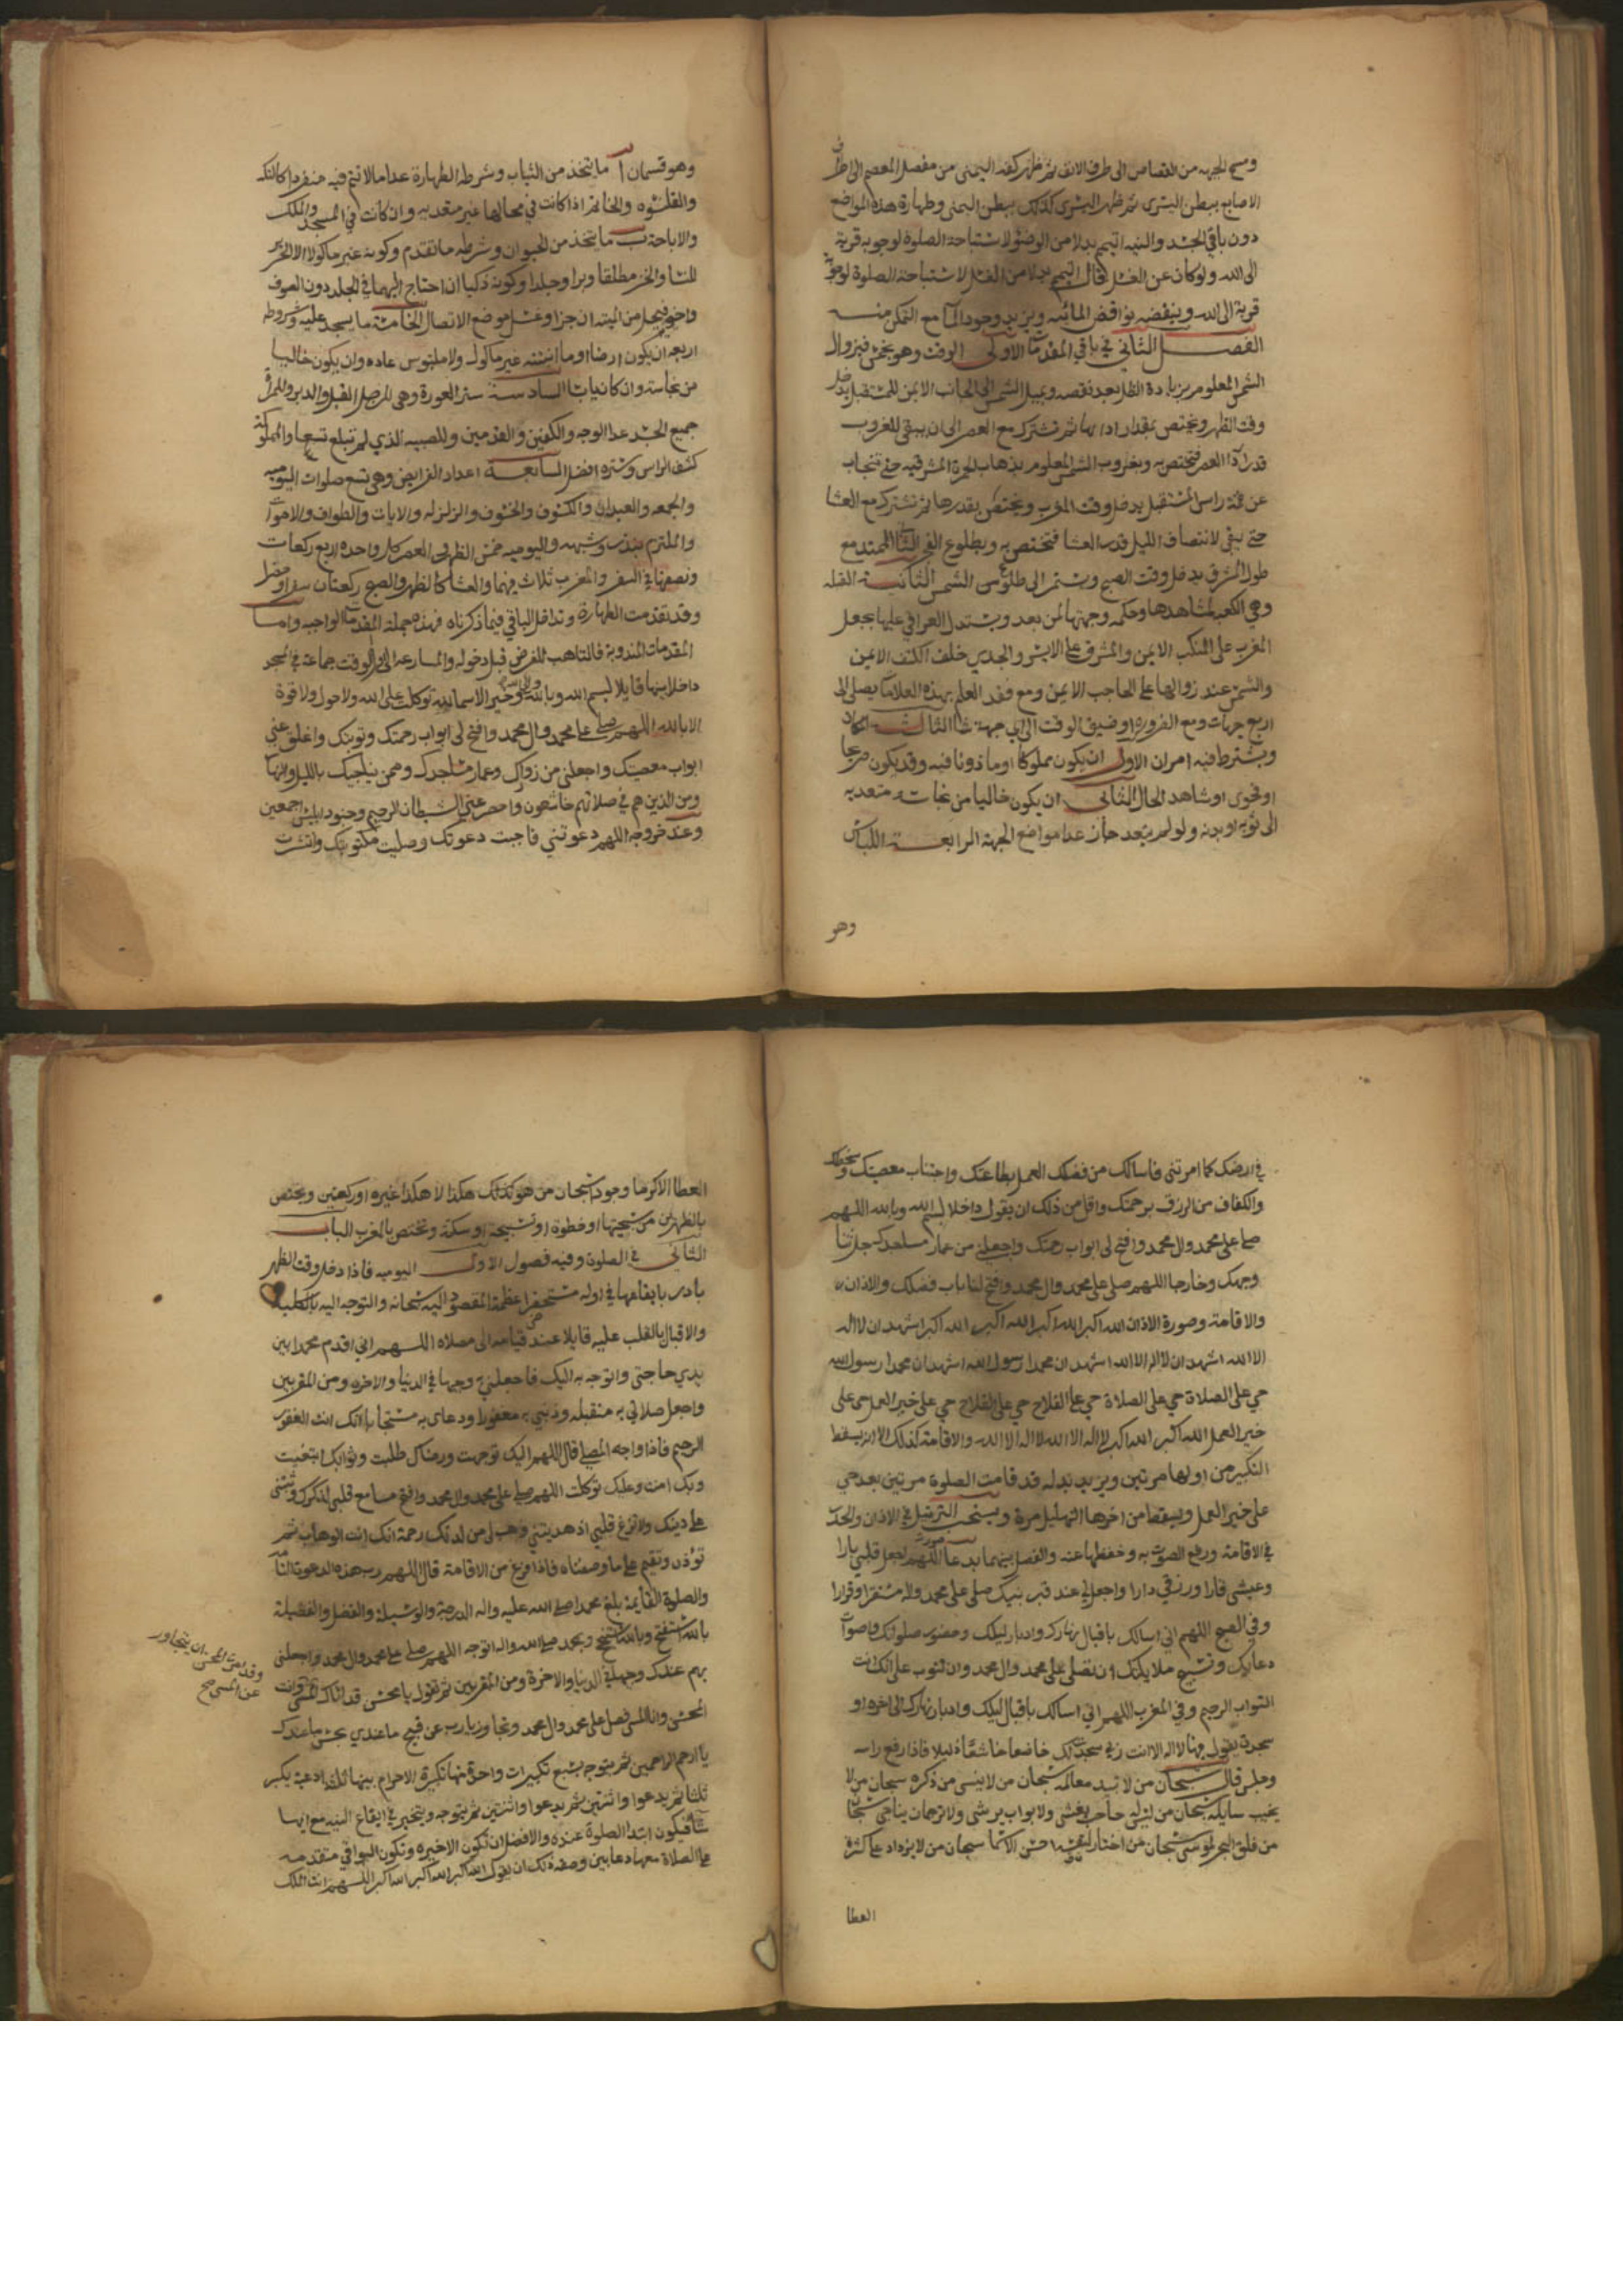 ومسح الجبهه من القصاص الى طرف الانف ثم ظهر كفه اليمنى من مفصل المعصم الى اطراف
الاصابع ببطن اليسرى ثم ظهر اليسرى كذلك ببطن اليمنى وطهارة هذه المواضع
دون باقي الجسد والنيه اتيمم بدلا من الوضؤ لاستباحة الصلوة لوجوبه قربة
الى الله ولو كان عن الغسل لقال اتيمم بدلا من الغسل لاستباحة الصلوة لوجوبه
قربة الى الله وينقضه نواقض المائيه ويزيد وجود الماء مع التمكن منه
الفصل الثاني في باقي المقدمات الاولى الوقت وهو بخمس فبزوال
الشمس المعلوم بزيادة الظل بعد نقصه وبميل الشمس الى الجانب الايمن للمستقبل يدخل
وقت الظهر ويختص بمقدار ادائها ثم تشترك مع العصر الى ان يبقى للغروب
قدر اداء العصر فتختص به وبغروب الشمس المعلوم بذهاب الحمرة المشرقيه حتى تنجاب
عن قمة راس المستقبل يدخل وقت المغرب ويختص بقدرها ثم تشترك مع العشا
حتى يبقى لانتصاف الليل قدر العشا فتختص به وبطلوع الفجر الثاني الممتد مع
طول المشرق يدخل وقت الصبح ويستمر الى طلوع الشمس الثانية القبله
وهي الكعبه لمشاهدها وحكمه وجهتها لمن بعد ويستدل العراقي عليها بجعل
المغرب على المنكب الايمن والمشرق على الايسر والجدي خلف الكتف الايمن
والشمس عند زوالها على الحاجب الايمن ومع فقد العلم بهذه العلامات يصلى الى
اربع جهات ومع الضروره او ضيق الوقت الى اي جهة شاء الثالثه المكان
ويشترط فيه امران الاول ان يكون مملوكا او ماذونا فيه وقد يكون صريحا
او فحوى او شاهد الحال الثاني ان يكون خاليا من نجاسة متعديه
الى ثوبه او بدنه ولو لم يتعد جاز عدا مواضع الجبهة الرابعة اللباس
وهو
وهو قسمان آ ما يتخذ من الثياب وشرطه الطهارة عدا ما لا تتم فيه منفردا كالتكه
والقلنسوه والخاتم اذا كانت في محالها غير متعديه وان كانت في المسجد والملك
والاباحة ب ما يتخذ من الحيوان وشرطه ما تقدم وكونه غير ماكول الا الحرير
للنسا والخز مطلقا وبرا وجلدا وكونه ذكيا ان احتاج اليها في الجلد دون الصوف
واخوته فيحل من الميته ان جزا وغسل موضع الاتصال الخامسة ما يسجد عليه وشروطه
اربعه ان يكون ارضا او ما انبتته غير ماكول ولا ملبوس عاده وان يكون خاليا
من نجاسة وان كان يابسا السادسة ستر العورة وهي للرجل القبل والدبر وللمراة
جميع الجسد عدا الوجه والكفين والقدمين وللصبيه الذي لم تبلغ تسعا والمملوكة
كشف الراس وستره افضل السابعة اعداد الفرايض وهي تسع صلوات اليوميه
والجمعه والعيدان والكسوف والخسوف والزلزله والايات والطواف والاموات
والملتزم بنذر وشبهه واليوميه خمس الظهر والعصر كل واحدة اربع ركعات
ونصفها في السفر والمغرب ثلاث فيهما والعشا كالظهر والصبح ركعتان سفرا وحضرا
وقد تقدمت الطهارة وتداخل الباقي فيما ذكرناه فهذه جملة المقدمات الواجبه واما
المقدمات المندوبة فالتاهب للفرض قبل دخوله والمسارعه الى اول الوقت جماعة في المسجد
داخلا بها قايلا بسم الله وبالله وخير الاسما لله توكلت على الله ولا حول ولا قوة
الا بالله اللهم صلى على محمد وال محمد وافتح لى ابواب رحمتك وتوبتك واغلق عني
ابواب معصيتك واجعلني من زوارك وعمار مساجدك وممن يناجيك بالليل والنهار
ومن الذين هم في صلاتهم خاشعون وادحر عني الشيطان الرجيم وجنود ابليس اجمعين
وعند خروجه اللهم دعوتني فاجبت دعوتك وصليت مكتوبتك وانتشرت
في ارضك كما امرتني فاسالك من فضلك العمل بطاعتك واجتناب معصيتك وسخطك
والكفاف من الرزق برحمتك واقل من ذلك ان يقول داخلا بسم الله وبالله اللهم
صلى على محمد وال محمد وافتح لى ابواب رحمتك واجعلني من عمار مساجدك جل ثنا
وجهك وخارجا اللهم صلى على محمد وال محمد وافتح لنا باب فضلك والاذان
والاقامة وصورة الاذان الله اكبر الله اكبر الله اكبر الله اكبر اشهد ان لا اله
الا الله اشهد ان لا اله الا الله اشهد ان محمدا رسول الله اشهد ان محمدا رسول الله
حي على الصلاة حي على الصلاة حي على الفلاح حي على الفلاح حي على خير العمل حى على
خير العمل الله اكبر الله اكبر لا اله الا الله لا اله الا الله والاقامة كذلك الا انه يسقط
التكبير من اولها مرتين ويزيد بدله قد قامت الصلوة مرتين بعد حي
على خير العمل ويسقط من اخرها التهليل مرة ويستحب الترتيل في الاذان والحدر
في الاقامة ورفع الصوت به وخفضها عنه والفصل بينهما بدعا صورته اللهم اجعل قلبي بارا
وعيشى قارا ورزقي دارا واجعل لي عند قبر نبيك صلى على محمد واله مستقرا وقرارا
وفي الصبح اللهم اني اسالك باقبال نهارك وادبار ليلك وحضور صلوتك واصوات
دعاتك وتسبيح ملايكتك ان تصلى على محمد وال محمد وان تتوب على انك انت
التواب الرحيم وفي المغرب اللهم اني اسالك باقبال ليلك وادبار نهارك الى اخره او
سجدة يقول فيها لا اله الا انت ربي سجدت لك خاضعا خاشعا ذليلا فاذا رفع راسه
وجلس قال سبحان من لا تبيد معالمه سبحان من لا ينسى من ذكره سبحان من لا
يخيب سايله سبحان من ليس له حاجب يغشى ولا بواب يرشى ولا ترجمان يناجى سبحان
من فلق البحر لموسى سبحان من اختار لنفسه احسن الاسما سبحان من لا يزداد على كثرة
العطا
العطا الا كرما وجودا سبحان من هو كذلك هكذا لا هكذا غيره او ركعتين ويختص
بالظهرين من سبحتها او خطوة او تسبيحة او سكتة وتختص بالمغرب الباب
الثاني في الصلوة وفيه فصول الاول اليوميه فاذا دخل وقت الظهر
بادر بايقاعها في اوله مستحضرا عظمة المقصود اليه سبحانه والتوجه اليه بالكليه
والاقبال بالقلب عليه قايلا عند قيامه الى مصلاه اللهم اني اقدم محمدا بين
يدي حاجتى واتوجه به اليك فاجعلني به وجيها في الدنيا والاخره ومن المقربين
واجعل صلاتي به متقبله وذنبي به مغفورا ودعاي به مستجابا انك انت الغفور
الرحيم فاذا واجه المصلى قال اللهم اليك توجهت ورضاك طلبت وثوابك ابتغيت
وبك امنت وعليك توكلت اللهم صلى على محمد وال محمد وافتح مسامع قلبي لذكرك وثبتني
على دينك ولا تزغ قلبي اذ هديتني وهب لى من لدنك رحمة انك انت الوهاب ثم
تؤذن وتقيم على ما وصفناه فاذا فرغ من الاقامة قال اللهم رب هذه الدعوة التامه
والصلوة القايمة بلغ محمدا صلى الله عليه واله الدرجة والوسيلة والفضل والفضيلة
بالله استفتح وبالله استنجح وبمحمد صلى الله واله اتوجه اللهم صلى على محمد وال محمد واجعلني
بهم عندك وجيها في الدنيا والاخرة ومن المقربين ثم تقول يا محسن قد اتاك المسى وانت
المحسن وانا المسى فصل على محمد وال محمد وتجاوز يا رب عن قبيح ما عندي بحسن ما عندك
يا ارحم الراحمين ثم يتوجه بسبع تكبيرات واحدة منها تكبيرة الاحرام بينها ثلثة ادعية يكبر
ثلثا ثم يدعوا واثنتين ثم يدعوا واثنتين ثم يتوجه ويتخير في ايقاع النيه مع ايها
شاء فيكون ابتدا الصلوة عنده والافضل ان تكون الاخيره وتكون البواقي متقدمه
على الصلاة معها دعا بين وصفه ذلك ان يقول الله اكبر الله اكبر الله اكبر اللهم انت الملك
وقد امرت المحسن ان يتجاوز
عن المسى صح